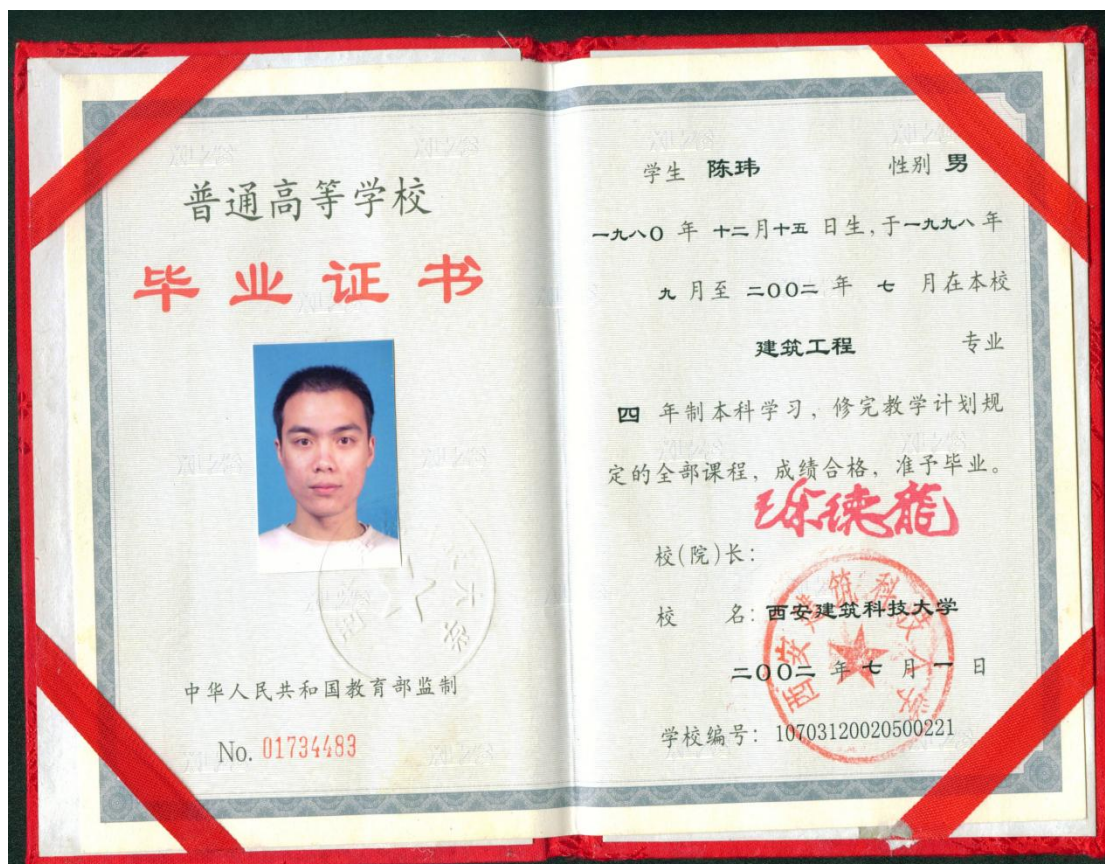 普通高等学校
毕业证书
中华人民共和国教育部监制
No. 01734483
学生 陈玮 性别 男
一九八〇 年 十二月十五 日生,于一九九八 年
九 月至 二〇〇二 年 七 月在本校
建筑工程 专业
四 年制本科学习,修完教学计划规
定的全部课程,成绩合格,准予毕业。
徐德龙
校(院)长:
校 名: 西安建筑科技大学
二〇〇二 年 七 月 一 日
西安建筑科技大学
学校编号: 10703120020500221